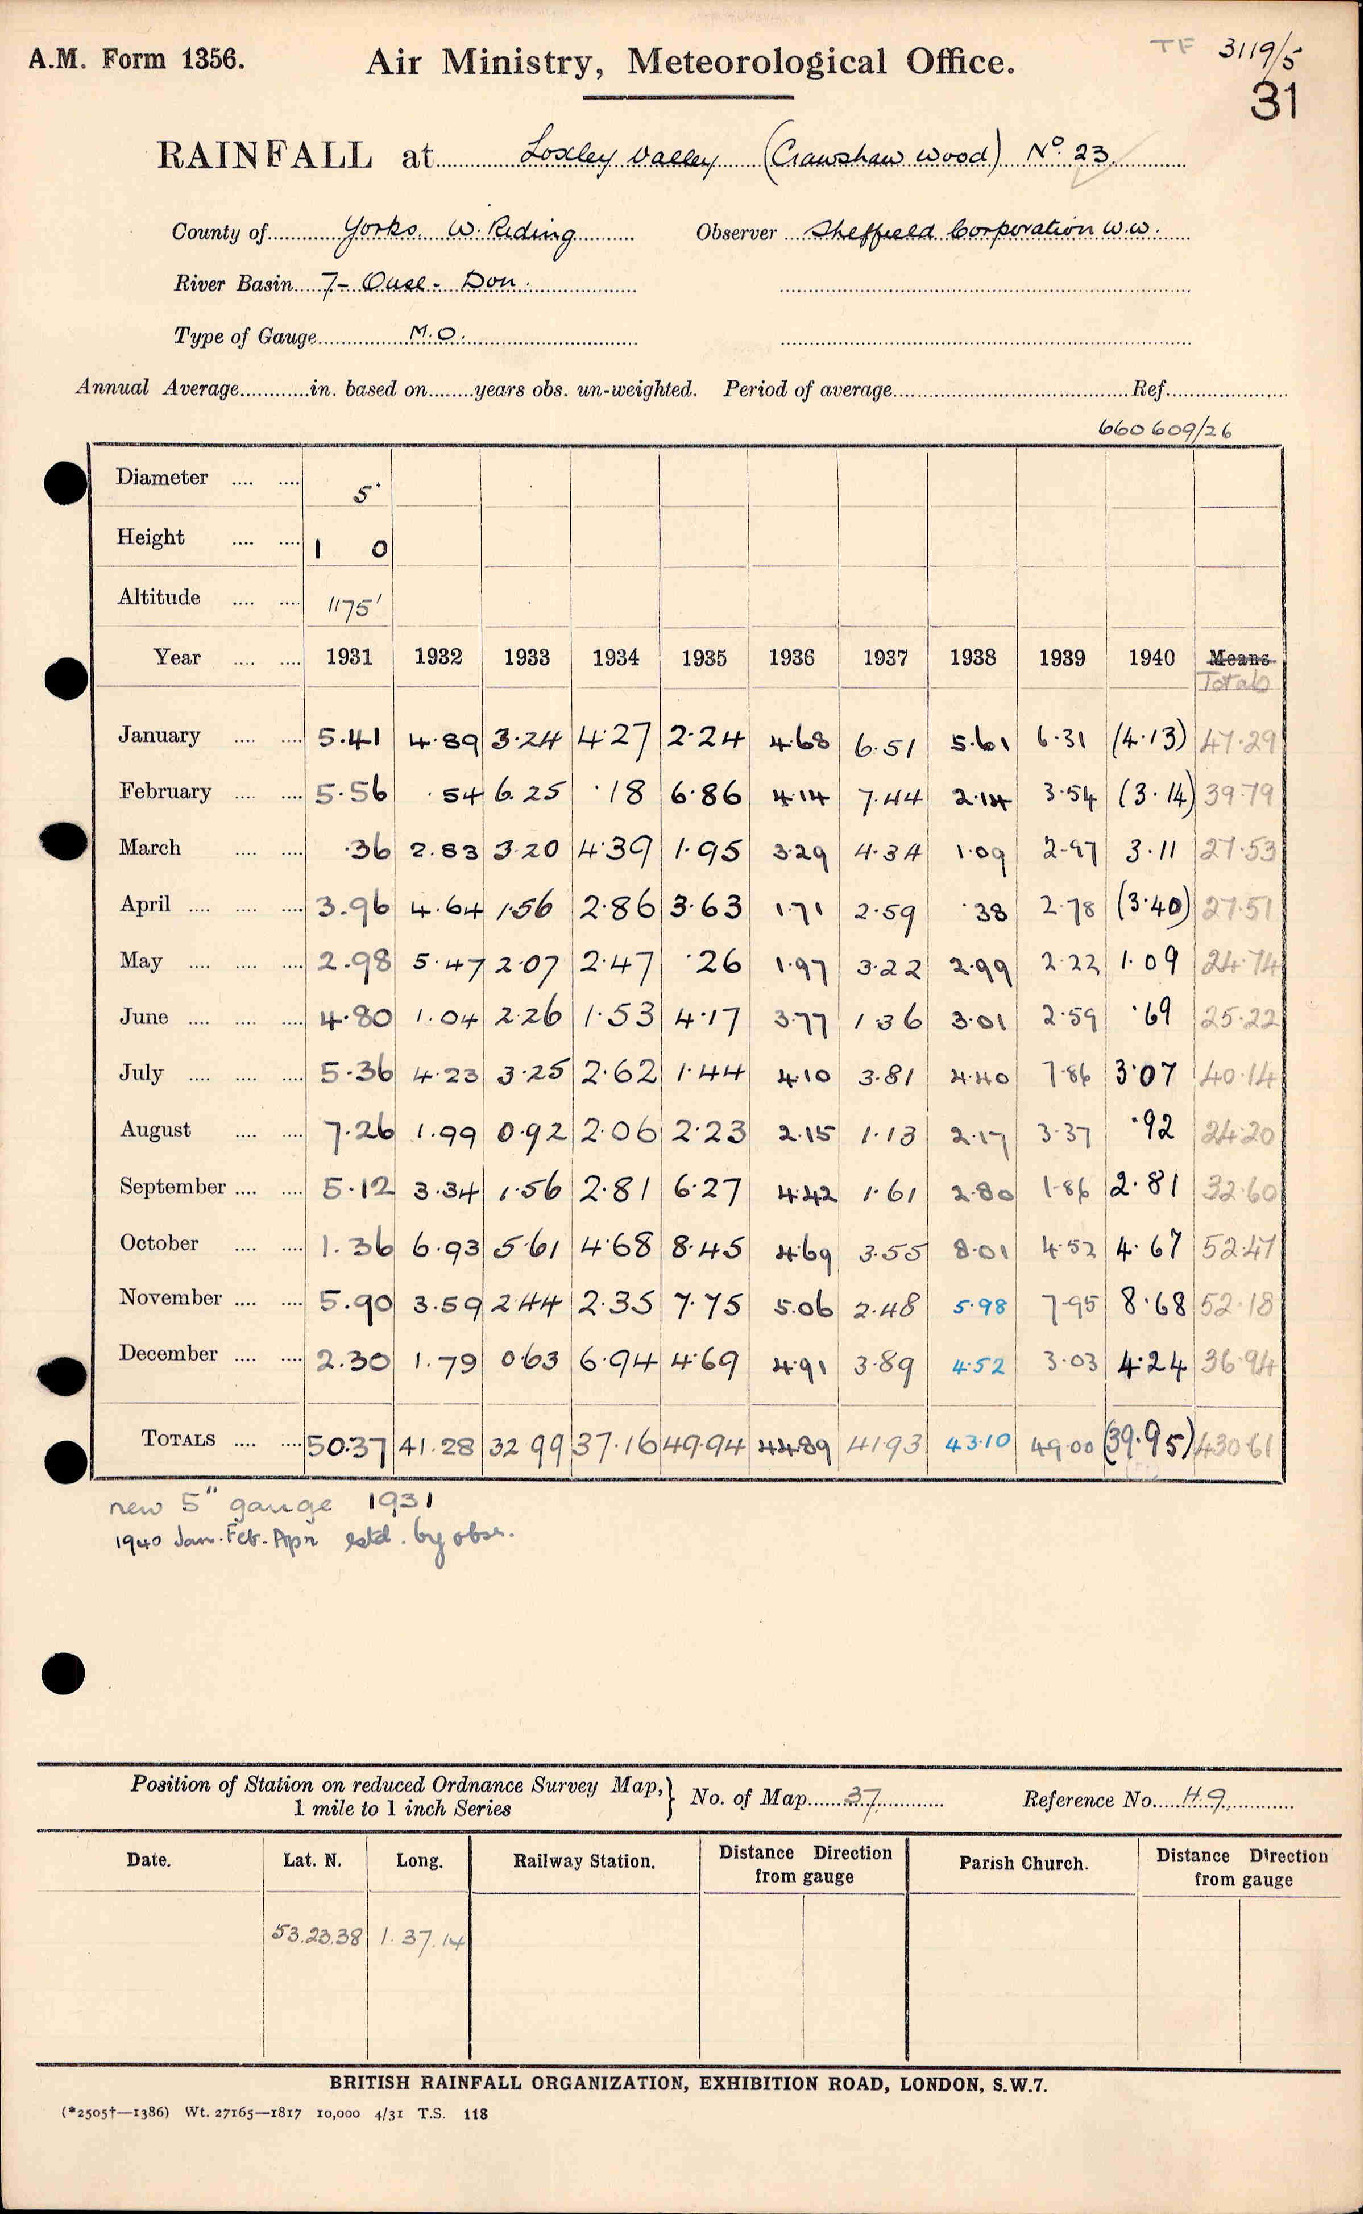 A.M. Form 1356. Air Ministry, Meteorological Office. TF 3119/5
31
RAINFALL at Loxley Valley (Crawshaw Wood) No. 23
County of Yorks. W. Riding Observer Sheffield Corporation W.W.
River Basin 7- Ouse - Don.
Type of Gauge M.O.
Annual Average in. based on years obs. un-weighted. Period of average Ref.
660609/26
Diameter 5"
Height 1 0
Altitude 1175'
Year 1931 1932 1933 1934 1935 1936 1937 1938 1939 1940 Means
Totals
January 5.41 4.89 3.24 4.27 2.24 4.68 6.51 5.61 6.31 (4.13) 47.29
February 5.56 .54 6.25 .18 6.86 4.14 7.44 2.14 3.54 (3.14) 39.79
March .36 2.83 3.20 4.39 1.95 3.29 4.34 1.09 2.97 3.11 27.53
April 3.96 4.64 1.56 2.86 3.63 1.71 2.59 .38 2.78 (3.40) 27.51
May 2.98 5.47 2.07 2.47 .26 1.97 3.22 2.99 2.22 1.09 24.74
June 4.80 1.04 2.26 1.53 4.17 3.77 1.36 3.01 2.59 .69 25.22
July 5.36 4.23 3.25 2.62 1.44 4.10 3.81 4.40 7.86 3.07 40.14
August 7.26 1.99 0.92 2.06 2.23 2.15 1.13 2.17 3.37 .92 24.20
September 5.12 3.34 1.56 2.81 6.27 4.42 1.61 2.80 1.86 2.81 32.60
October 1.36 6.93 5.61 4.68 8.45 4.69 3.55 8.01 4.52 4.67 52.47
November 5.90 3.59 2.44 2.35 7.75 5.06 2.48 5.98 7.95 8.68 52.18
December 2.30 1.79 0.63 6.94 4.69 4.91 3.89 4.52 3.03 4.24 36.94
TOTALS 50.37 41.28 32.99 37.16 49.94 44.89 41.93 43.10 49.00 (39.95) 430.61
new 5" gauge 1931
1940 Jan. Feb. Apr estd. by obsr.
Position of Station on reduced Ordnance Survey Map,} No. of Map 37 Reference No. H.9.
1 mile to 1 inch Series
Date. Lat. N. Long. Railway Station. Distance Direction from gauge Parish Church. Distance Direction from gauge
53.23.38 1.37.14
BRITISH RAINFALL ORGANIZATION, EXHIBITION ROAD, LONDON, S.W.7.
(*2505†—1386) Wt. 27165—1817 10,000 4/31 T.S. 118